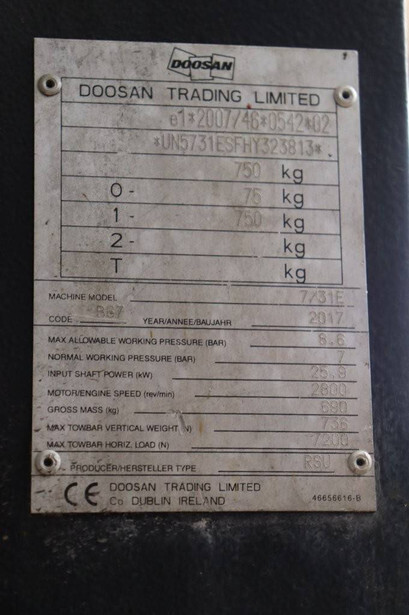 DOOSAN
DOOSAN TRADING LIMITED
e1*2007/46*0542*02
*UN5731ESFHY323813*
750 kg
0- 75 kg
1- 750 kg
2- kg
T kg
MACHINE MODEL 7/31E
CODE BG7 YEAR/ANNEE/BAUJAHR 2017
MAX ALLOWABLE WORKING PRESSURE (BAR) 8.6
NORMAL WORKING PRESSURE (BAR) 7
INPUT SHAFT POWER (kW) 25.9
MOTOR/ENGINE SPEED (rev/min) 2800
GROSS MASS (kg) 690
MAX TOWBAR VERTICAL WEIGHT (N) 736
MAX TOWBAR HORIZ. LOAD (N) 7200
PRODUCER/HERSTELLER TYPE RSU
CE DOOSAN TRADING LIMITED
Co DUBLIN IRELAND 46656616-B